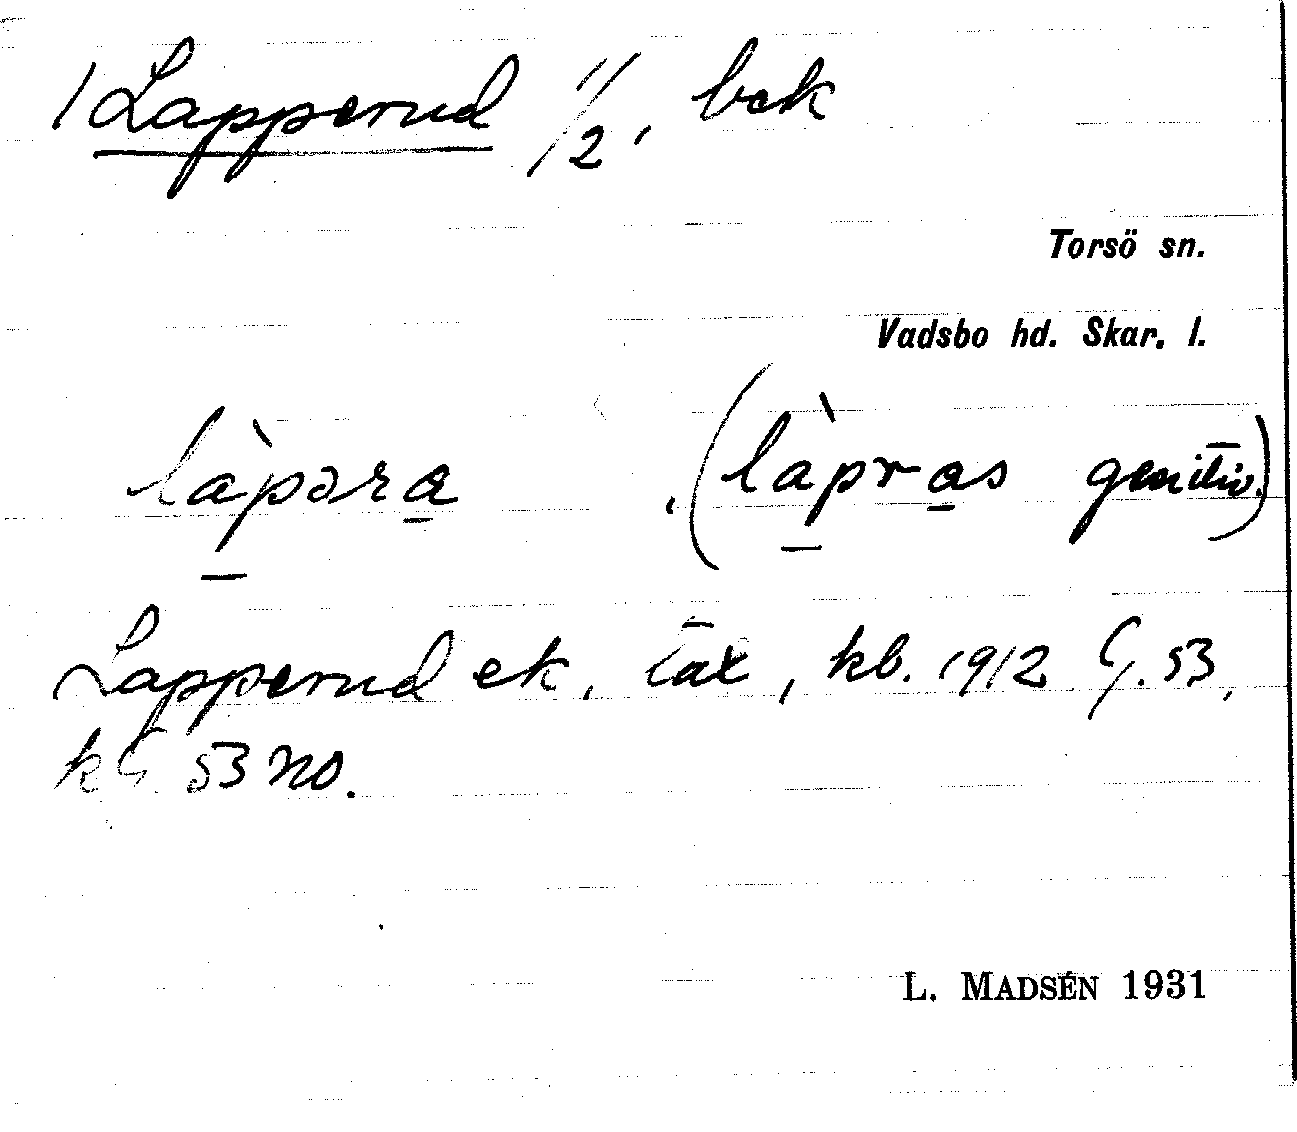 1 Lapperud 1/2, bek
Torsö sn.
Vadsbo hd. Skar. l.
làpəra . (làpras genitiv.)
Lapperud ek, tax, kb. 1912 G. 53,
kG 53 no.
L. MADSÉN 1931